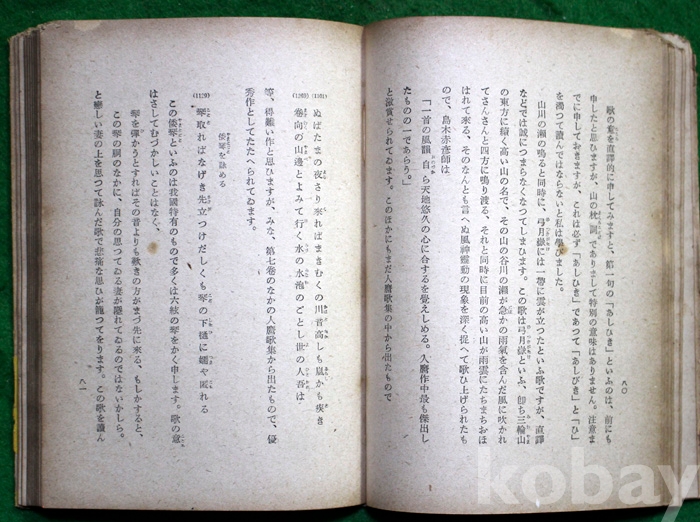 八〇
歌の意を直譯的に申してみますと、第一句の「あしひき」といふのは、前にも
申したと思ひますが、山の枕詞でありまして特別の意味はありません。注意ま
でに申しておきますが、これは必ず「あしひき」であつて「あしびき」と「ひ」
を濁つて讀んではならないと私は學びました。
山川の瀬の鳴ると同時に、弓月嶽には一帶に雲が立つたといふ歌ですが、直譯
などでは誠につまらなくなつてしまひます。この歌は弓月嶽といふ、卽ち三輪山
の東方に續く高い山の名で、その山の谷川の瀬が急かの雨氣を含んだ風に吹かれ
てさんさんと四方に鳴り渡る、それと同時に目前の高い山が雨雲にたちまちおほ
はれて來る、そのなんとも言へぬ風神靈動の現象を深く捉へて歌ひ上げられたも
ので、島木赤彦師は
「一首の風韻 自ら天地悠久の心に合するを覺えしめる。人麿作中最も傑出し
たものの一であらう。」
と激賞せられてゐます。このほかにもまだ人麿歌集の中から出たもので
(1101) ぬばたまの夜さり來ればまきむくの川音高しも嵐かも疾き
(1269) 卷向の山邊とよみて行く水の水泡のごとし世の人吾は
等、得難い作と思ひますが、みな、第七卷のなかの人麿歌集から出たもので、優
秀作としてたたへられてゐます。
倭琴を詠める
(1129) 琴取ればなげき先立つけだしくも琴の下樋に嬬や匿れる
この倭琴といふのは我國特有のもので多くは六絃の琴をかく申します。歌の意
はさしてむづかしいことはなく、
琴を彈かうとすればその音よりも歎きの方がまづ先に來る、もしかすると、
この琴の胴のなかに、自分の思つてゐる妻が隱れてゐるのではないかしら。
と戀しい妻の上を思つて詠んだ歌で悲痛な思ひが籠つてをります。この歌を讀ん
八一
kobay